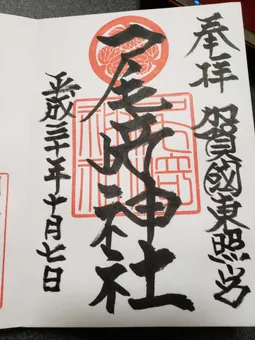 奉拝
賀國東照宮
尾崎神社
平成三十年十月七日